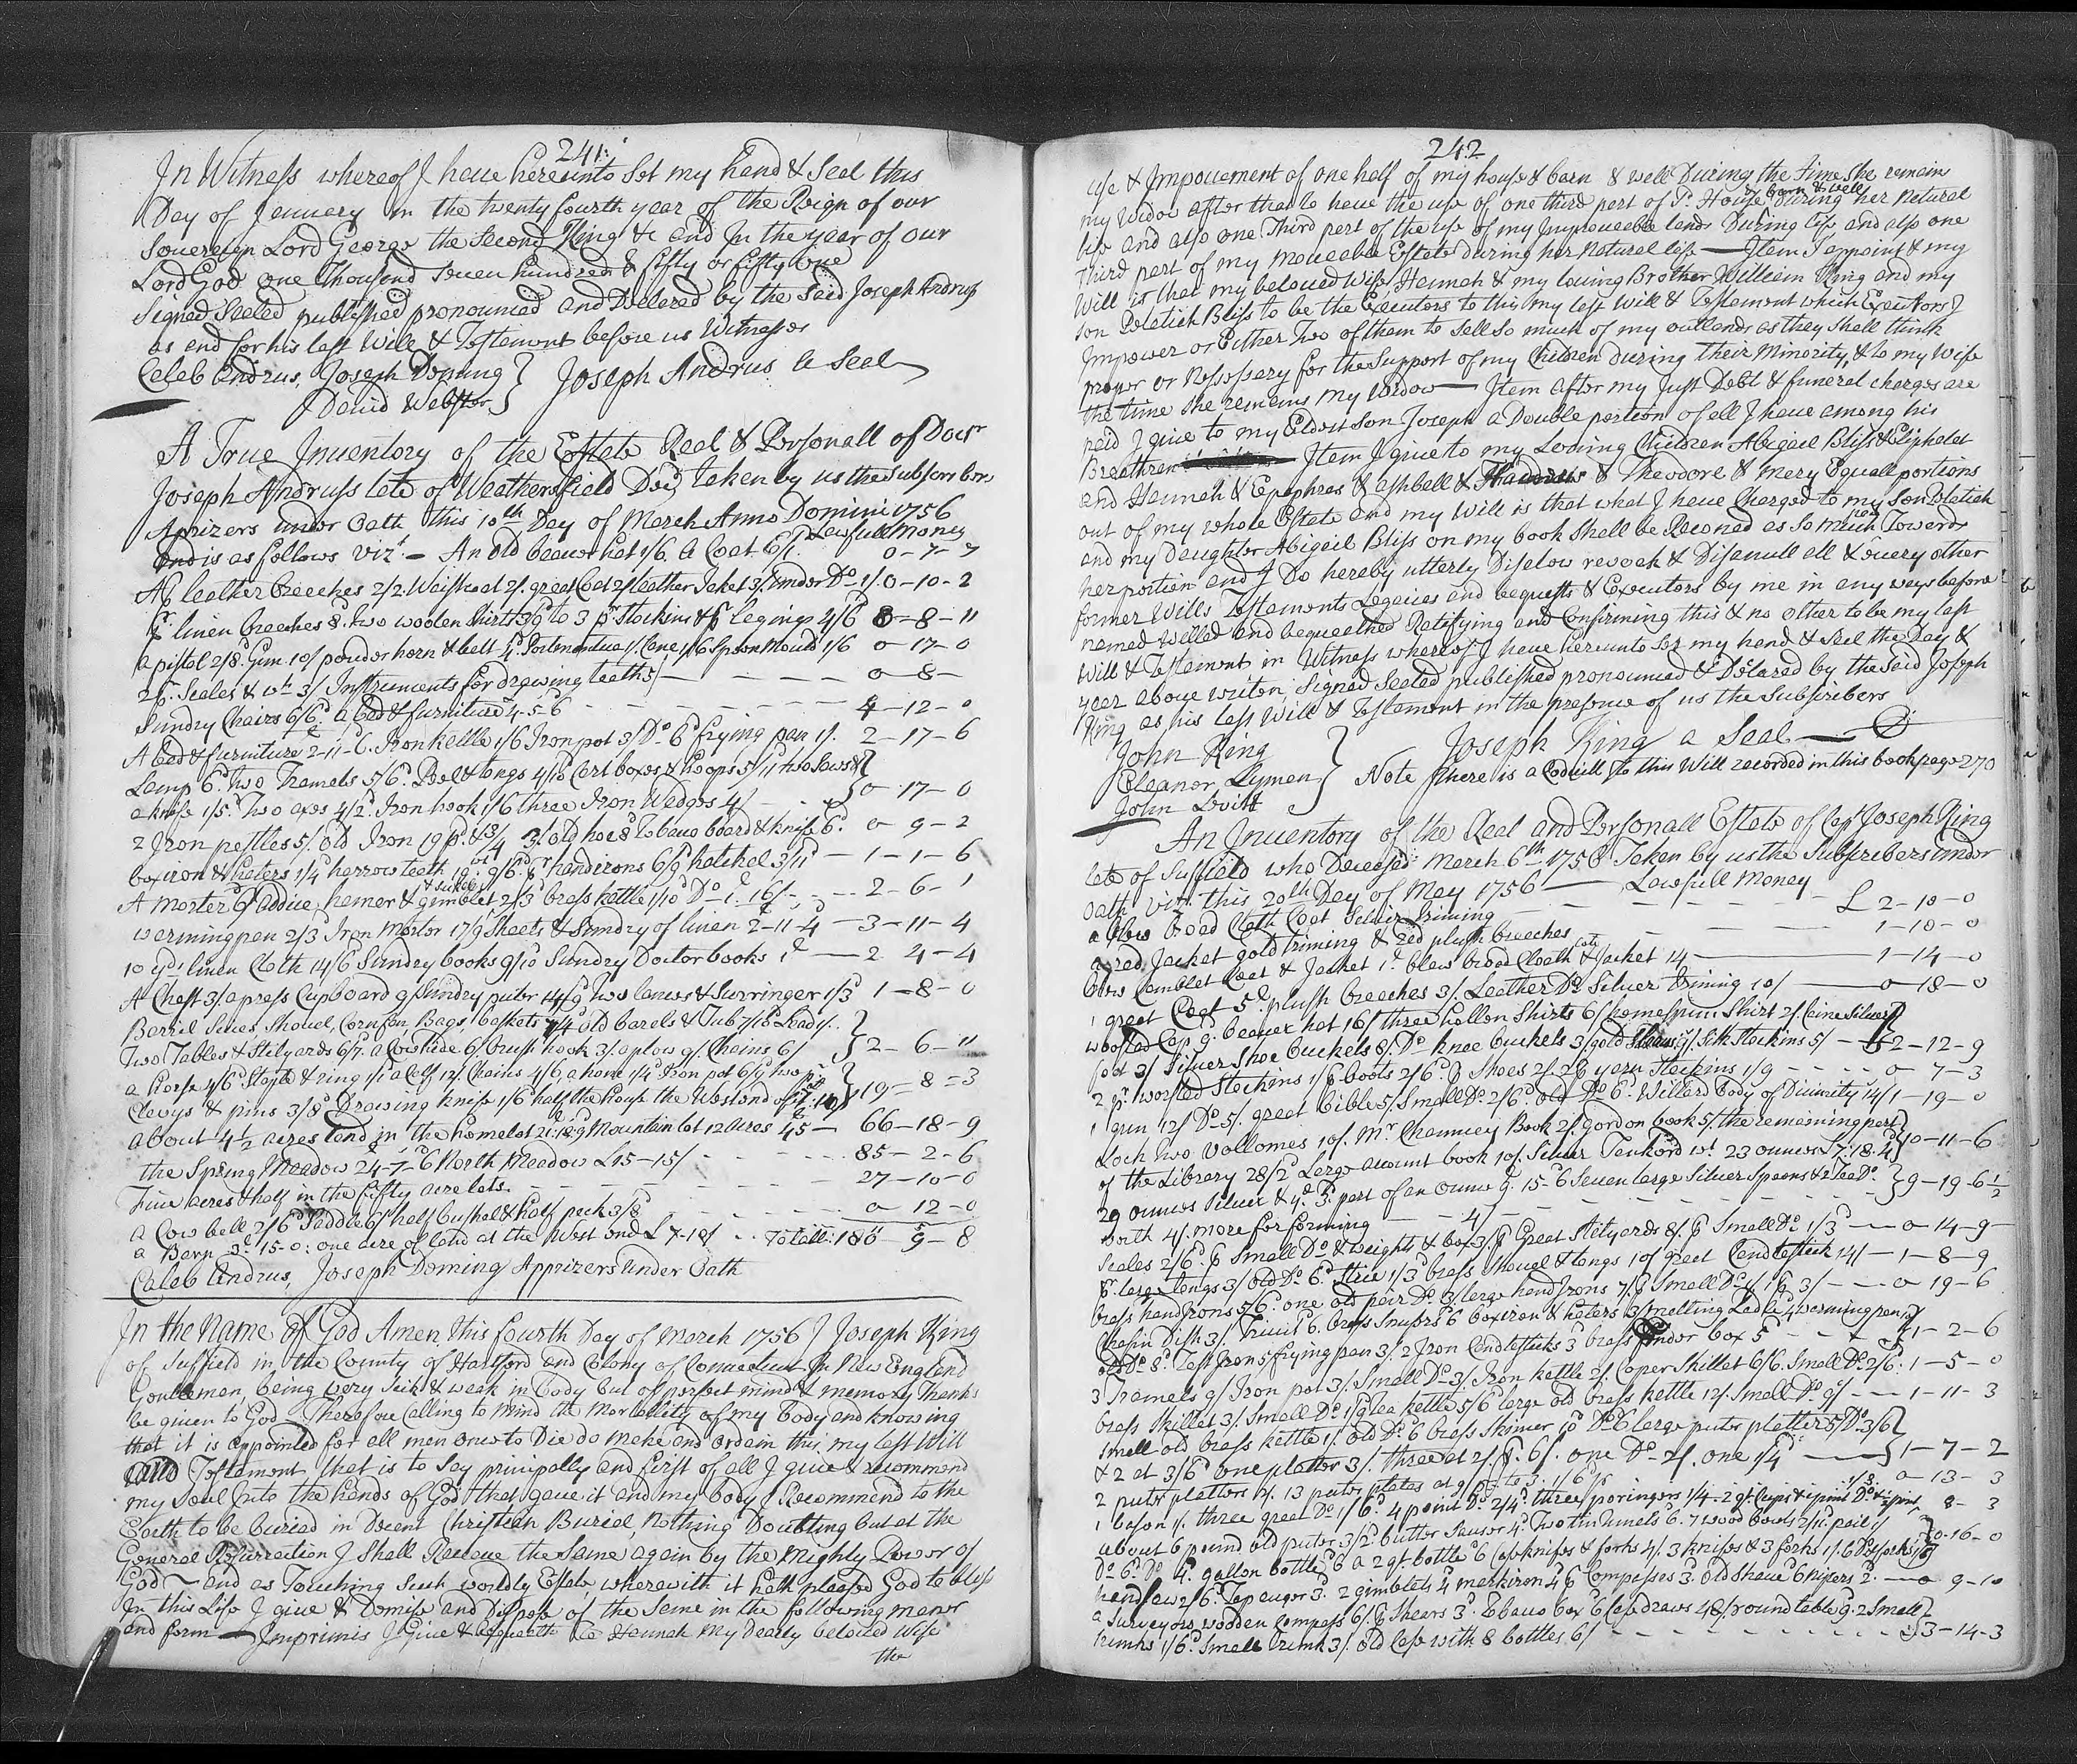 241.
In Witness whereof I have hereunto Set my hand & Seal this
Day of Jenuery in the twenty fourth year of the Reign of our
Souereign Lord George the Second King &c and In the year of our
Lord God one Thousand Seuen hundred & fifty or fifty one
Signed Sealed published pronounced and Declered by the Said Joseph Andrus
as and for his last Will & Testament before us Witnesses
Caleb Andrus, Joseph Doming } Joseph Andrus a Seal
& Dauid Webster
A True Inuentory of the Estate Reel & Personall of Docr
Joseph Andruss late of Weathersfield Decd, taken by us the Subscribers
Apprizers under Oath this 10th Day of March Anno Domini 1756
and is as follows viz - An old beauer hat 1/6 A Coat 6/1 Lawfull Money 0-7-7
A pr leather breeches 2/2. Waistcoat 2/. great Coat 2/ leather Jaket 3/. under Do 1/. 0-10-2
pr linen breeches 8d two woolen Shirts 3/9 to 3 pr Stockins & pr legings 4/6 0-8-11
a pistol 2/8 Gun 10/ pouder horn & belt 4d. Portmantua 1/. Cane 1/6 Spoon Mould 1/6 0-17-0
2 pr Scales & wts 3/ Instruments for drawing teeth 5/ - - - 0-8-
Sundry Chairs 6/6d a bed & furniture 4-5-6 - - - 4-12-0
A bed & furniture 2-11-6. Iron kettle 1/6 Iron pot 3/ Do 6d frying pan 1/. 2-17-6
Lamp 6d. two Tramels 5/6d. Peel & tongs 4/10 Cart boxes & hoops 5/11 two Saws &
a knife 1/5. two axes 4/2 Iron hook 1/6 three Iron Wedges 4/ - - } 0-17-0
2 Iron pestles 5/. old Iron 19 lb 3/4 3 old hoes 8d Tobaco board & knife 6d. 0-9-2
box iron & heters 1/4 harrow teeth 19 wt 9/6. pr handirons 6/9 hatchel 3/11 - 1-1-6
A morter 9d addice, hamer & gimblet 2/3 brass kettle 1/10 Do 1£ 16/- - - 2-6-1
warming pan 2/3 Iron Mortor 17/9 Sheets & Sundry of linen 2-11-4 - 3-11-4
10 yds linen Cloth 14/6 Sundry books 9/10 Sundry Doctor books 1£ - 2 4-4
A Chest 3/. a press Cupboard 9/ Sundry puter 14/9 two lances & Surringer 1/3 1-8-0
Barril Siues Shouel, Corn fan, Bags, baskets 7/4 old barels & Tub 7/10 Lead 1/.
Two Tables & Stilyards 6/7. a Cowhide 6/ brush hook 3/. a plow 9/. Chains 6/ } 2-6-11
a Horse 4/6 Staple & ring 1/1 a Calf 12/. Chains 4/6 a hone 1/4 Iron pot 6/9 two
Clevys & pins 3/8d Drawing knife 1/6 half the house the West end of it £10 } 19-8-3
about 4 1/2 acres Land in the homelot 21:18:9 Mountain lot 12 Acres 45 - 66-18-9
the Spring Meadow 24-7-6 North Meadow £15-15/ - - - 85-2-6
Fiue acres & half in the fifty acre lots - - - 27-10-0
a Cow bell 2/6d Saddle 6/ half bushel & half peck 3/8 - - - 0 12-0
a Barn 3£ 15-0: one acre of land at the West end £7-10/ - - Totall: 186-9-8
Caleb Andrus, Joseph Doming Apprizers under Oath
In the Name of God Amen this fourth Day of March 1756 I Joseph King
of Suffield in the County of Hartford and Colony of Connecticut In New England
Gentlemen, being very Sick & weak in body but of perfect mind & memory, thanks
be given to God - Therefore Calling to Mind the Mortallity of my body and knowing
that it is appointed for all men once to Die do make and ordain this my last Will
and Testament that is to Say principally and first of all I giue & recommend
my Soul Into the hands of God that gaue it and my body I Recommend to the
Earth to be buried in Decent Christian Buriel, Nothing Doubting but at the
General Resurrection I Shall Receue the Same again by the Mighty Power of
God - and as Touching Such worldly Estate, wherewith it hath pleased God to bless
In this Life I giue & Demise and Dispose of the Same in the following maner
and form - Imprimis I Giue & bequeath to Hannah My Dearly beloued Wife
the
242
use & Impouement of one half of my house & barn & well During the time She remain
my Widow after that to haue the use of one third part of sd. House barn & well During her Natural
life and also one Third part of the use of my Improueable lands During life and also one
Third part of my moueable Estate during her Natural life - Item I appoint & my
Will is that my beloued Wife Hannah & my louing Brother William King and my
Son Pelatiah Bliss to be the Executors to this my last will & Testament which Executors I
Impower or Either Two of them to Sell So much of my outlands as they Shall think
proper or Nessessery for the Support of my Children during their Minority, & to my Wife
the time She remains My Widow - Item after my Just Debt & funeral charges are
paid I giue to my Eldest Son Joseph a Double portion of all I haue among his
Breethren - Item I giue to my Louing Children Abigail Bliss & Eliphalet
and Hannah & Epaphras & Ashbell & Thaddeus & Theodore & Mary Equall portions
out of my whole Estate and my Will is that what I haue Charged to my Son Pelatiah
and my Daughter Abigail Bliss on my book Shall be Reconed as So much Towards
her portion and I Do hereby utterly Disalow revoak & Disanull all & euery other
former Wills Testaments Legacies and bequests & Executors by me in any ways before
named Willed and bequeathed Ratifying and Confirming this & no other to be my last
Will & Testament in Witness whereof I haue hereunto Set my hand & Seal the Day &
year aboue writen; Signed Sealed published pronounced & Declared by the Said Joseph
King as his last Will & Testament in the presence of us the Subscribers
John King
Eleanor Lyman } Joseph King a Seal
John Levitt Note there is a Codicill to this Will recorded in this book page 270
An Inuentory of the Real and Personall Estate of Cap Joseph King
late of Suffield who Deceased March 6th 1756 Taken by us the Subscribers under
Oath viz. this 20th Day of May 1756 - Lawfull Money
a blew broad Cloth Coat Siluer Triming - - - £ 2-10-0
a red Jacket gold triming & red plush breeches - - - 1-10-0
blew Camblet Coat & Jacket 1£. blew broad Cloath Coat & Jacket 14 - 1-14-0
1 great Coat 5/. plush breeches 3/. Leather Do Siluer Triming 10/ - 0-18-0
worsted Cap 9d. beauer hat 16/ three hollon Shirts 6/ homespun Shirt 2/ Caine Siluer
foot 3/ Siluer Shoe buckels 8/. Do knee buckels 3/ gold Sleaue 9/. Silk Stockins 5/ - 2-12-9
2 pr worsted Stockins 1/6 boots 2/6d. pr Shoes 2/. 2 pr yarn Stockins 1/9 - - - 0 7-3
1 gun 12/ Do 5/. great bible 5/. Small Do. 2/6d old Do 6d. Willard body of Diuinity 14/ 1-19-0
Lock two Vollomes 10/. Mr Chauncey Book 2/. Gordon book 5/. the remaining part
of the Library 28/2d Large account book 10/. Siluer Tankord wt. 23 ounces £7:18:4 } 10-11-6
29 ounces Siluer & 4d. 3d part of an Ounce 9-15-6 Seuen large Siluer Spoons & 2 Tea Do. } 9-19-6 1/2
worth 4/. more for forming - - 4/ - -
Scales 2/6d. pr Small Do & weights & box 3/. pr Great Stilyards 8/. pr Small Do 1/3 - 0-14-9
pr large tongs 3/ old Do 6d. Slice 1/3d brass Shouel & tongs 10/ great Candlestick 14/ - 1-8-9
brass hand Irons 5/6d. one old pair Do. 3/ large hand Irons 7/. pr Small Do 1/. pr 3/ - - 0 19-6
Chafin Dish 3/. Triuit 6d. brass Snufers 6 box iron & heters 3/ melting Ladle 4 warming pan
old Do 8d. Tost Iron 5 frying pan 3/. 2 Iron Candlesticks 3 brass tinder box 5 - - - 1-2-6
3 Tramels 9/ Iron pot 3/. Small Do 3/. Iron kettle 2/. Coper Skillet 6/6. Small Do 2/6. 1-5-0
brass Skillet 3/. Small Do 1/9 tea kettle 5/6 large old brass kettle 12/. Small Do 9/ - - 1-11-3
Small old brass kettle 1/. old Do. 6 brass Skimer 10d Do 6 large puter platter 5/ Do. 3/6
& 2 at 3/6d one platter 3/. three at 2/. pr. 6/. one Do 2/. one 1/4 - - } 1-7-2
2 puter platters 1/. 13 puter plates at 9/. pr to 3. 1/6 ps 0-13-3
1 bason 1/. three great Do 1/6d 4 point Do 2/4 three poringers 1/4 - 2 qt Cups & 1 pint Do & 1/2 pint 1/8. 8-3
about 6 pound old puter 3/2d. butter Sauser 4d. Two tin tunels 6. 7 wood bowls 2/11. pail 1/
Do 6d. Do 4d. gallon bottle 6 a 2 qt bottle 6 Case knifes & forks 4/. 3 knifes & 3 forks 1/. 6 Do & forks 1/8 } 0-16-0
hand saw 2/6. Tap auger 3. 2 gimblets 4 markiron 4 pr Compasses 3. Old Shaue 6 nipers 2. - 0 9-10
a Surueyors wooden Compass 6/. pr Shears 3d. Tobaco box 6 Case draws 48/ round table 9. 2 Small
trunks 1/6d. Small trunk 3/. old Case with 8 bottles 6/ - - - 3-14-3